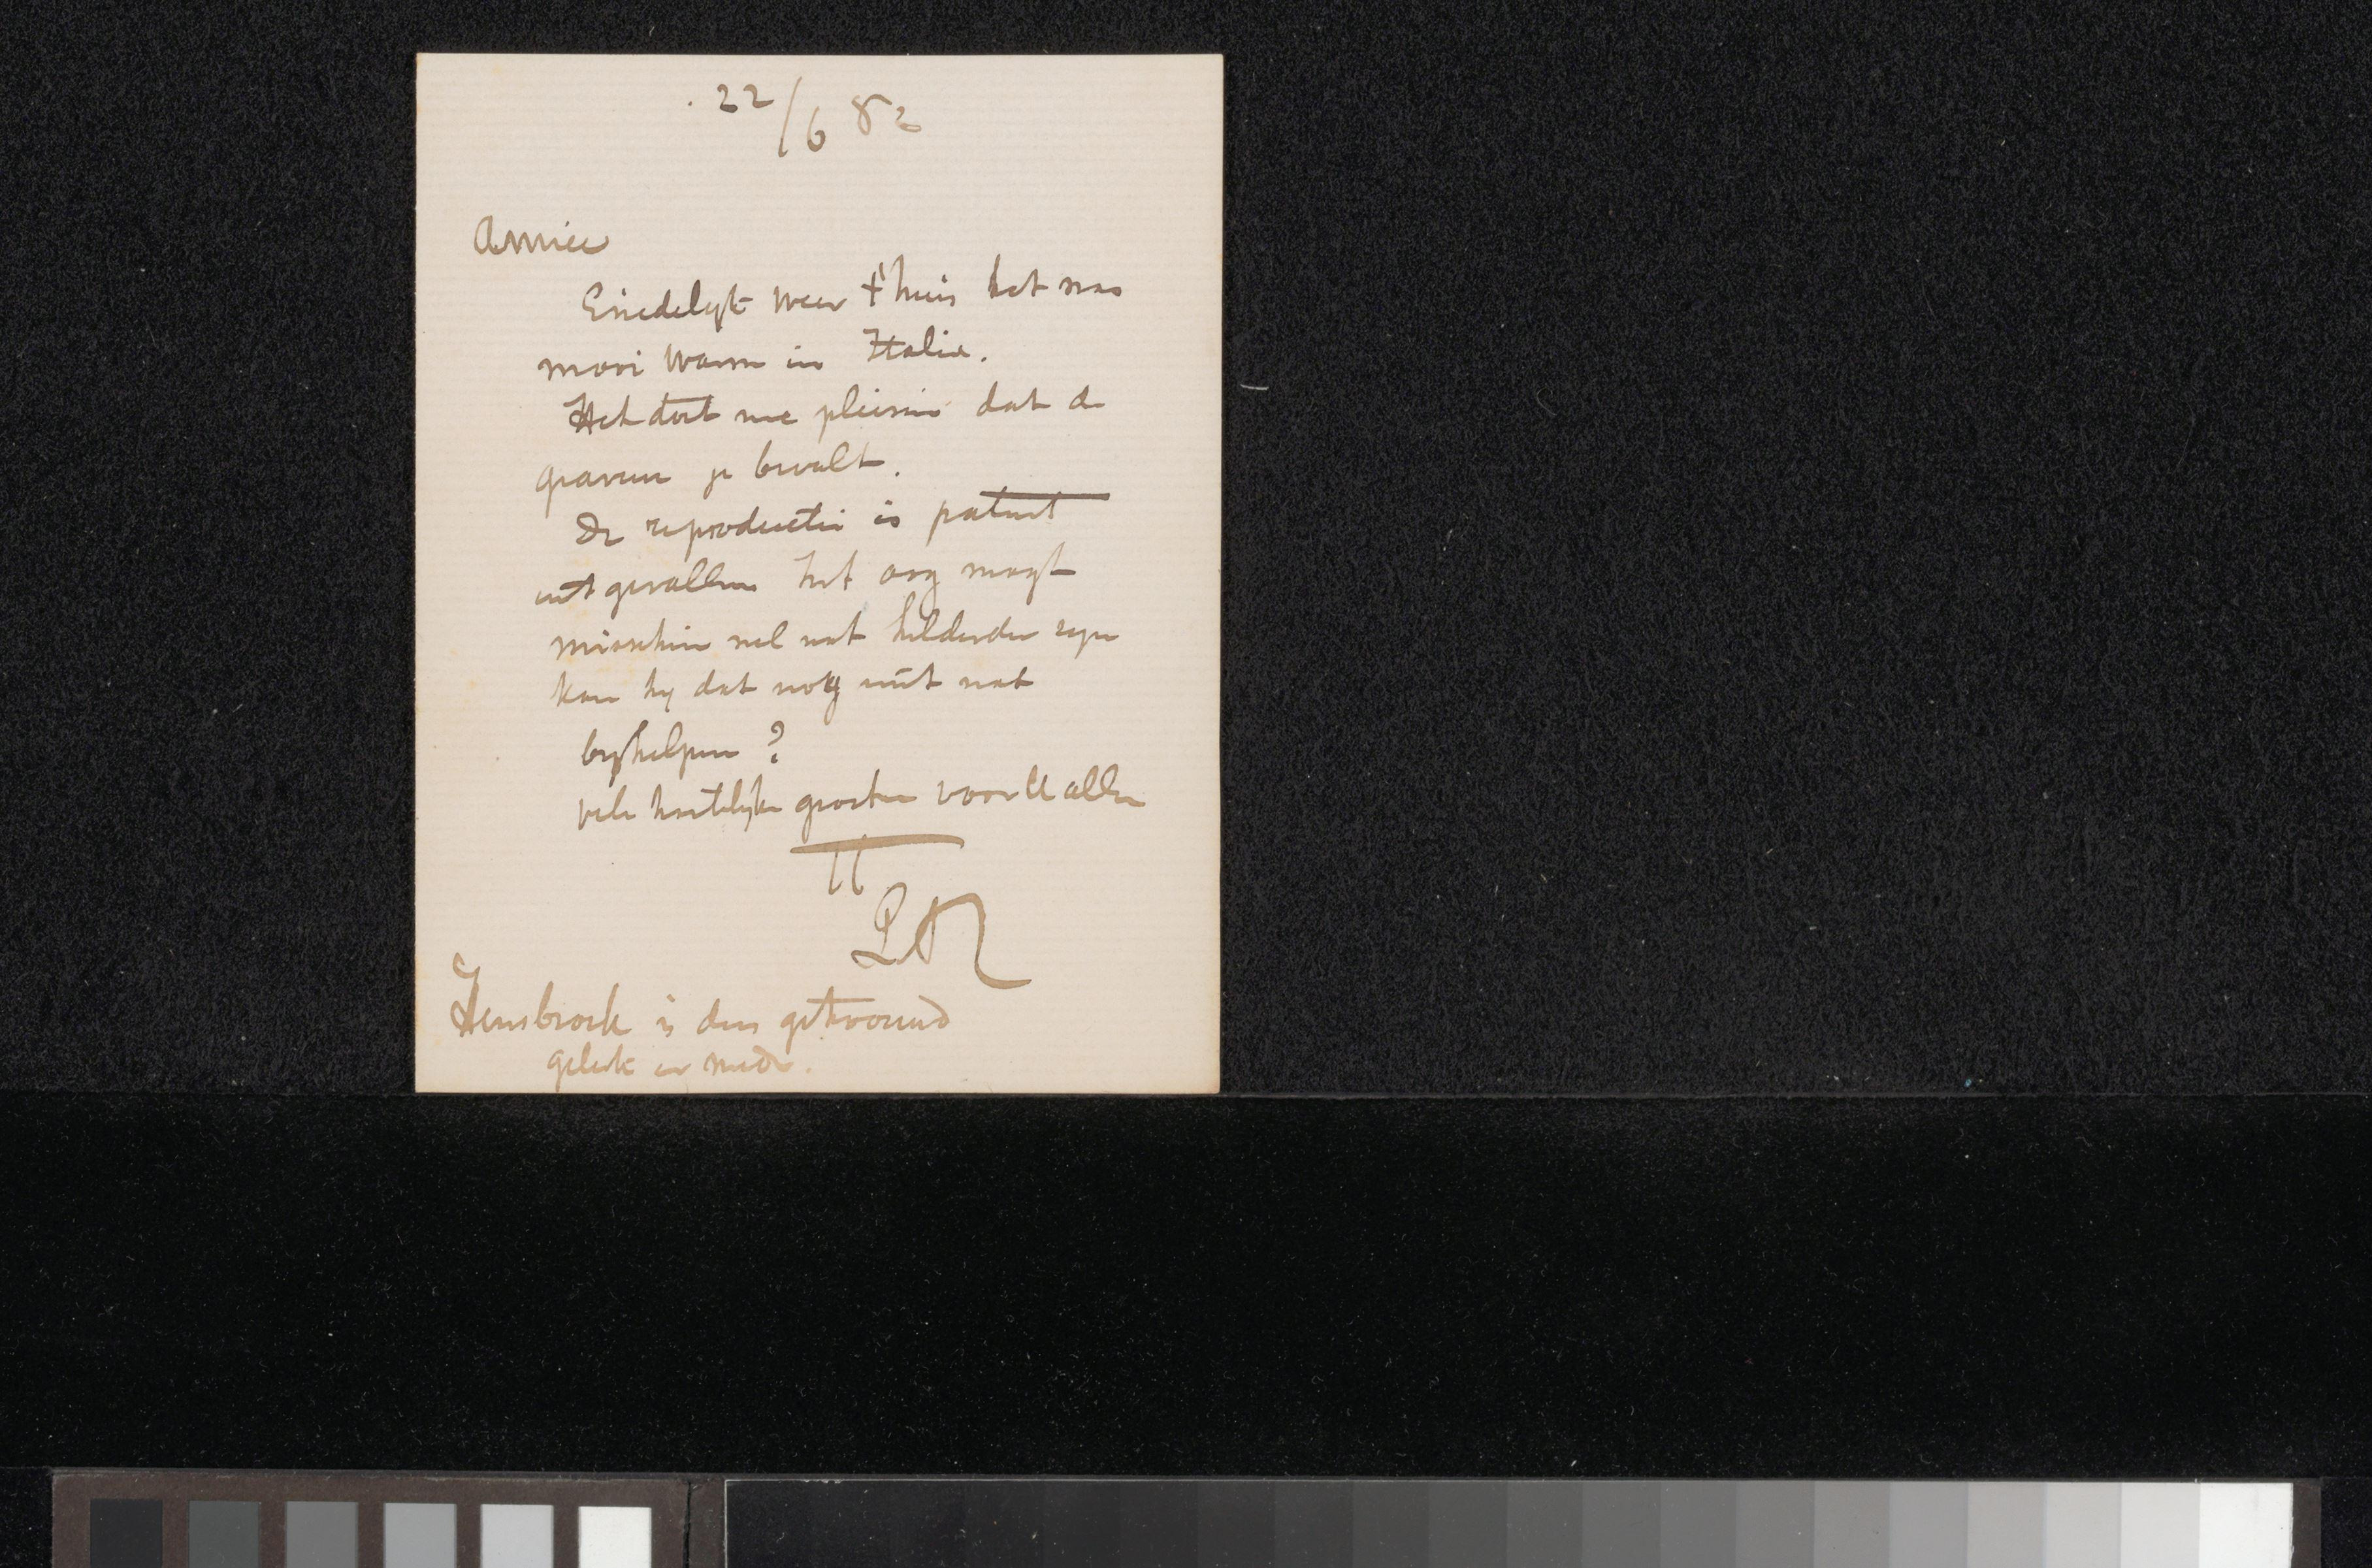 22/6 82
Amice
Eindelijk weer t'huis het was
mooi warm in Italie.
Het doet me pleizier dat de
gravure je bevalt.
De reproductie is patent
uitgevallen het oog mogt
misschien wel wat helderder zijn
kan hij dat nog niet wat
bijhelpen?
vele hartelijke groeten voor U allen
TT
Hensbroek is dus getrouwd
geluk er mede.